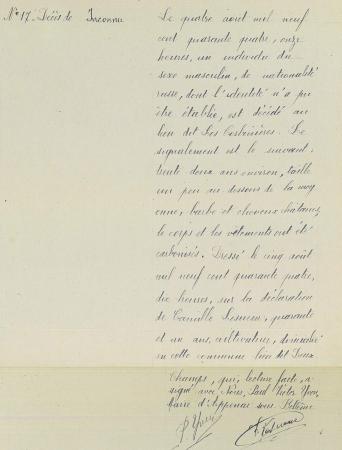 N° 17. Décès de Inconnu
Le quatre août mil neuf
cent quarante quatre, onze
heures, un individu du
sexe masculin, de nationalité
russe, dont l'identité n'a pu
être établie, est décédé au
lieu dit Les Corbinières. Le
signalement est le suivant:
trente deux ans environ, taille
un peu au dessous de la moy
enne, barbe et cheveux châtains,
le corps et les vêtements ont été
carbonisés. Dressé le cinq août
mil neuf cent quarante quatre,
dix heures, sur la déclaration
de Camille quarante
et un ans, cultivateur, domicilié
en cette commune lieu dit Deux
Champs, qui, lecture faite, a
signé avec Nous, Paul Victor Yvon,
Maire d'Appenai sous Bellême